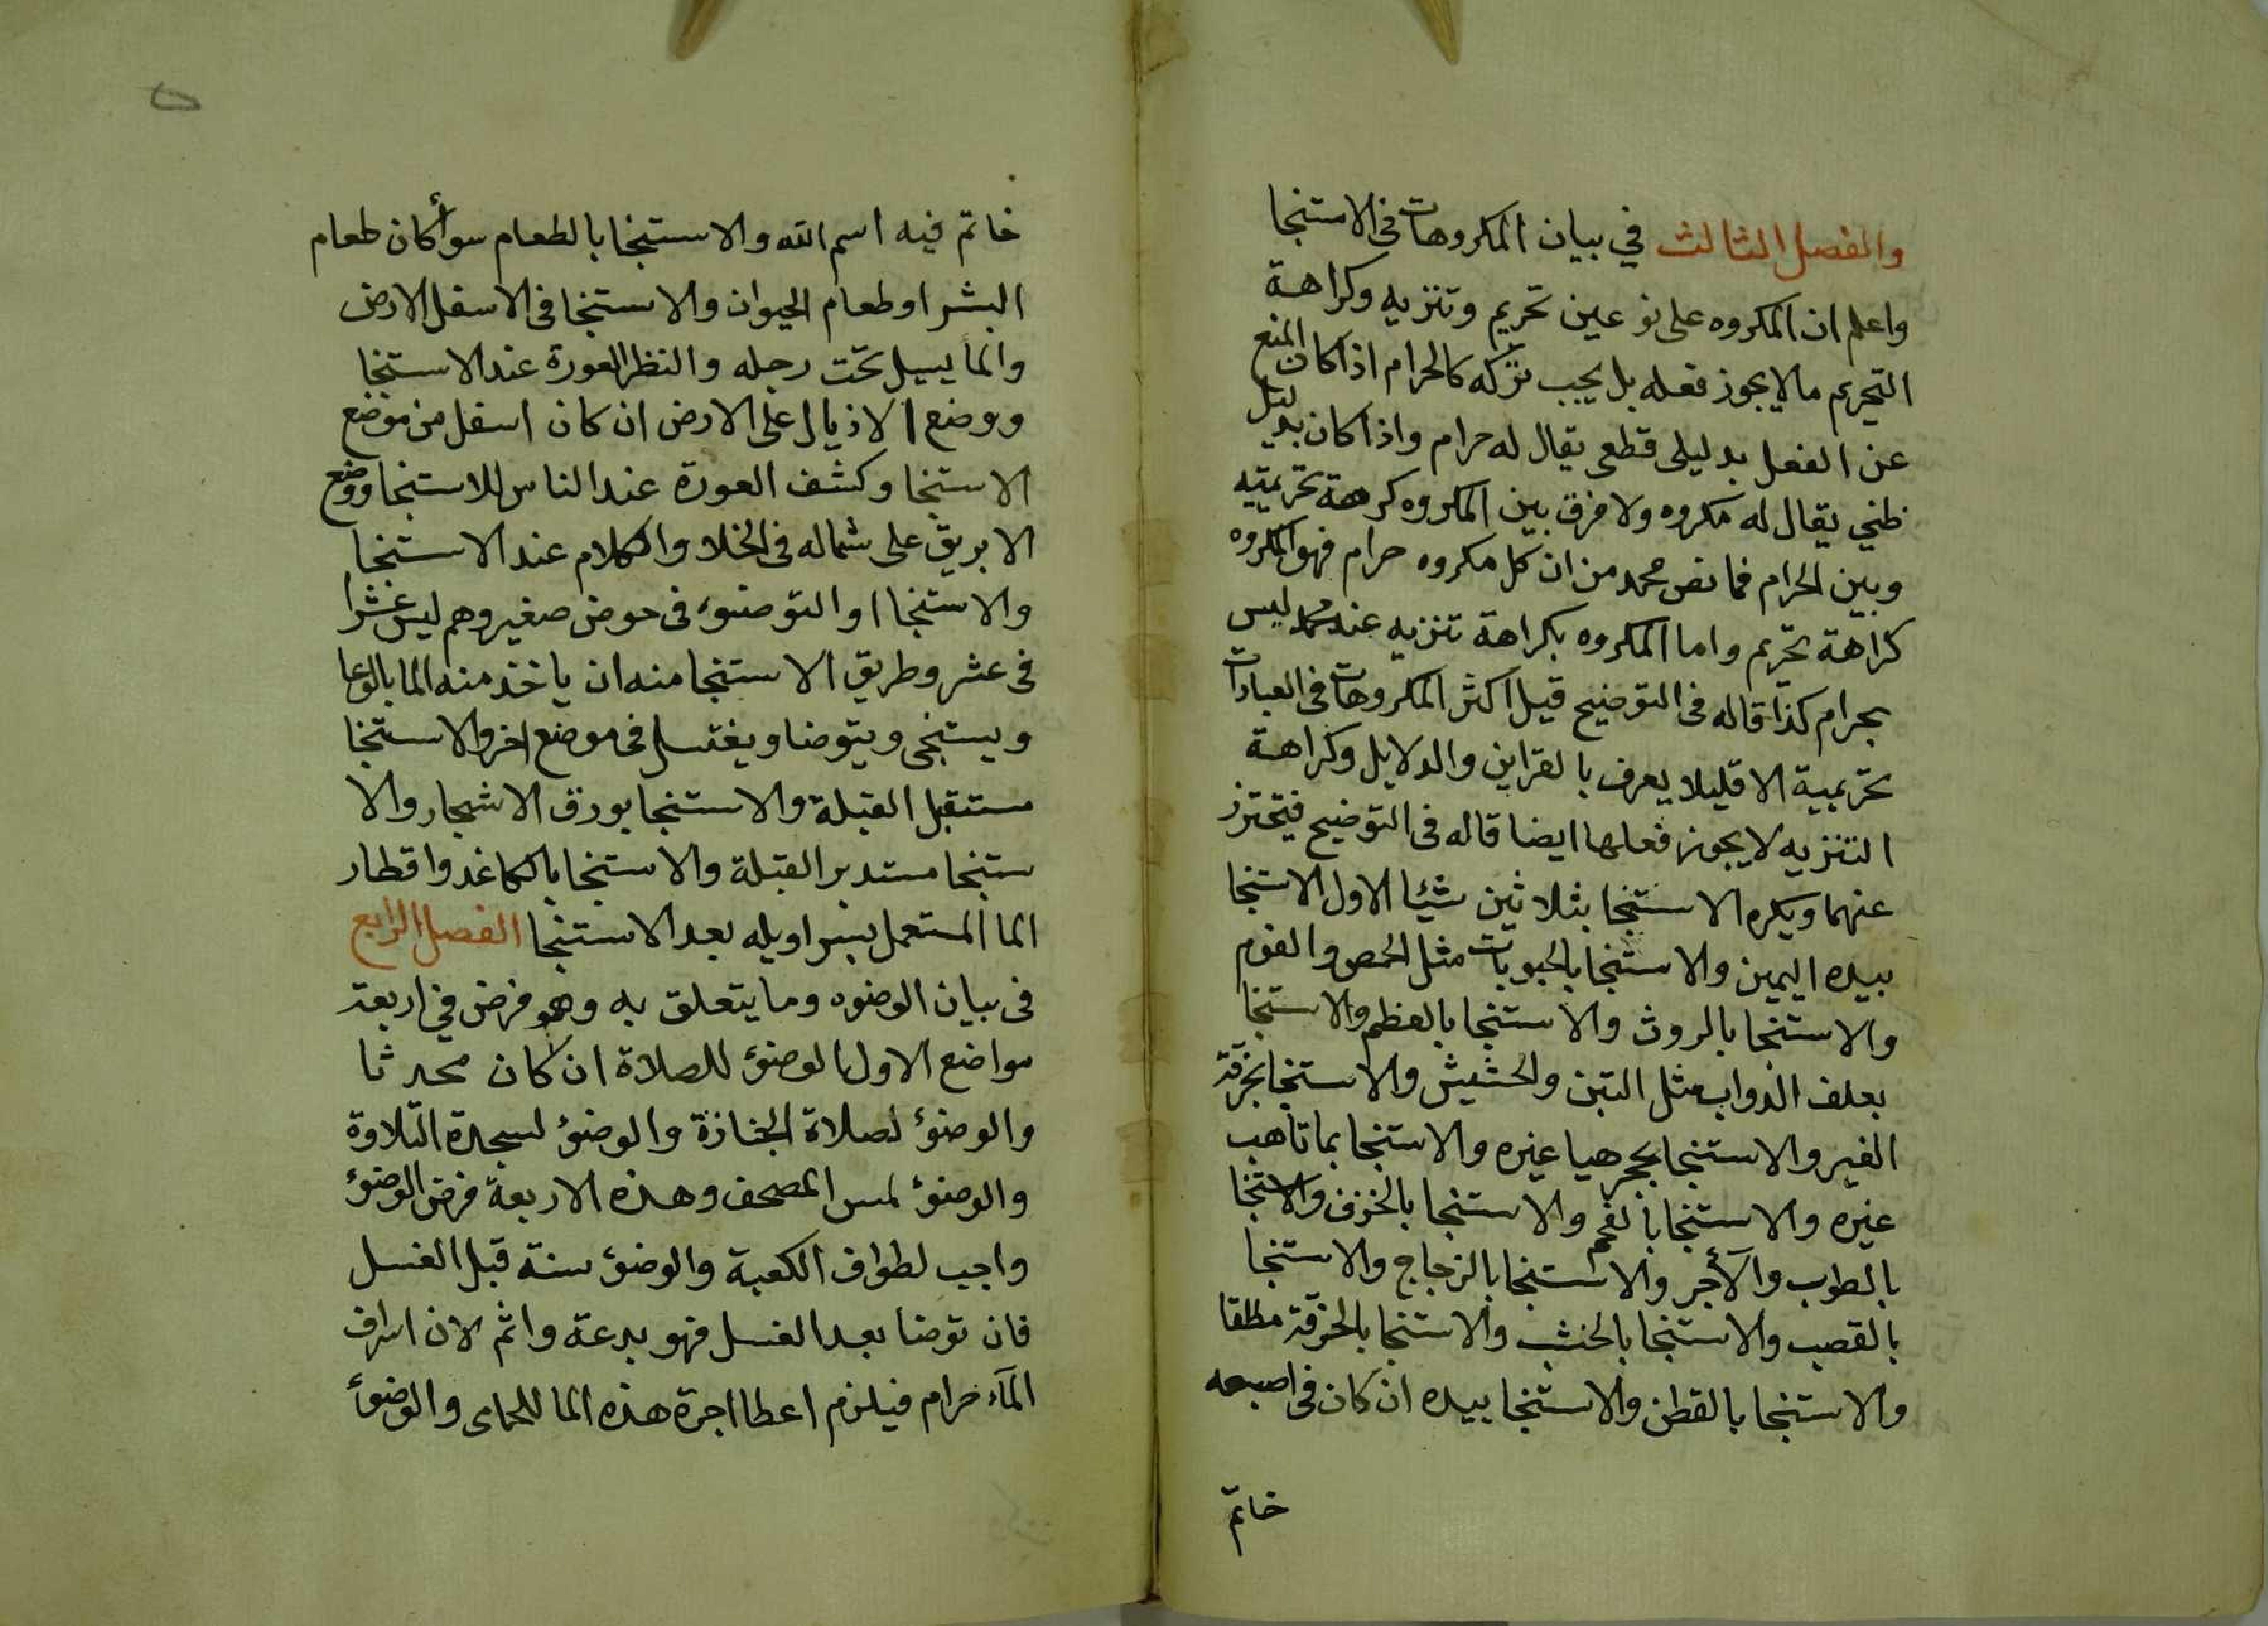 والفصل الثالث في بيان المكروهات فى الاستنجا
واعلم ان المكروه على نوعين تحريم وتنزيه وكراهة
التحريم مالا يجوز فعله بل يجب تركه كالحرام اذا كان المنع
عن الفعل بدليلى قطعى يقال له حرام واذا كان بدليل
ظني يقال له مكروه ولا فرق بين المكروه كرهة تحريميه
وبين الحرام فما نص محمد من ان كل مكروه حرام فهو المكروه
كراهة تحريم واما المكروه بكراهة تنزيه عند محمد ليس
بحرام كذا قاله فى التوضيح قيل اكثر المكروهات فى العبادات
تحريمية الا قليلا يعرف بالقراين والدلايل وكراهة
التنزيه لا يجوز فعلها ايضا قاله فى التوضيح فيحترز
عنهما ويكره الاستنجا بثلاثين شيئا الاول الاستنجا
بيده اليمين والاستنجا بالحبوبات مثل الحمص والفوم
والاستنجا بالروث والاستنجا بالعظم والاستنجا
بعلف الدواب مثل التبن والحشيش والاستنجا بخرقة
الغير والاستنجا بحجر هيا غيره والاستنجا بما تاهب
غيره والاستنجا بالفحم والاستنجا بالخزف والاستنجا
بالطوب والآجر والاستنجا بالزجاج والاستنجا
بالقصب والاستنجا بالخشب والاستنجا بالخرقة مطلقا
والاستنجا بالقطن والاستنجا بيده ان كان فى اصبعه
خاتم
خاتم فيه اسم الله والاستنجا بالطعام سوأ كان طعام
البشر او طعام الحيوان والاستنجا فى الاسفل الارض
والما يسيل تحت رجله والنظر العورة عند الاستنجا
ووضع الاذيال على الارض ان كان اسفل من موضع
الاستنجا وكشف العورة عند الناس للاستنجا ووضع
الابريق على شماله فى الخلا والكلام عند الاستنجا
والاستنجا او التوضوء فى حوض صغير وهم ليس عشرا
فى عشر وطريق الاستنجا منه ان ياخذ منه الما بالوعا
ويستنجى ويتوضا ويغتسل فى موضع اخر والاستنجا
مستقبل القبلة والاستنجا بورق الاشجار والا
ستنجا مستدبر القبلة والاستنجا بالكاغد واقطار
الما المستعمل بسراويله بعد الاستنجا الفصل الرابع
فى بيان الوضوء وما يتعلق به وهو فرض في اربعة
مواضع الاول الوضوء للصلاة ان كان محدثا
والوضوء لصلاة الجنازة والوضوء لسجدة التلاوة
والوضوء لمس المصحف وهذه الاربعة فرض الوضوء
واجب لطواف الكعبة والوضوء سنة قبل الغسل
فان توضا بعد الغسل فهو بدعة واثم لان اسراف
المآء حرام فيلزم اعطا اجرة هذه الما للحمامى والوضوء